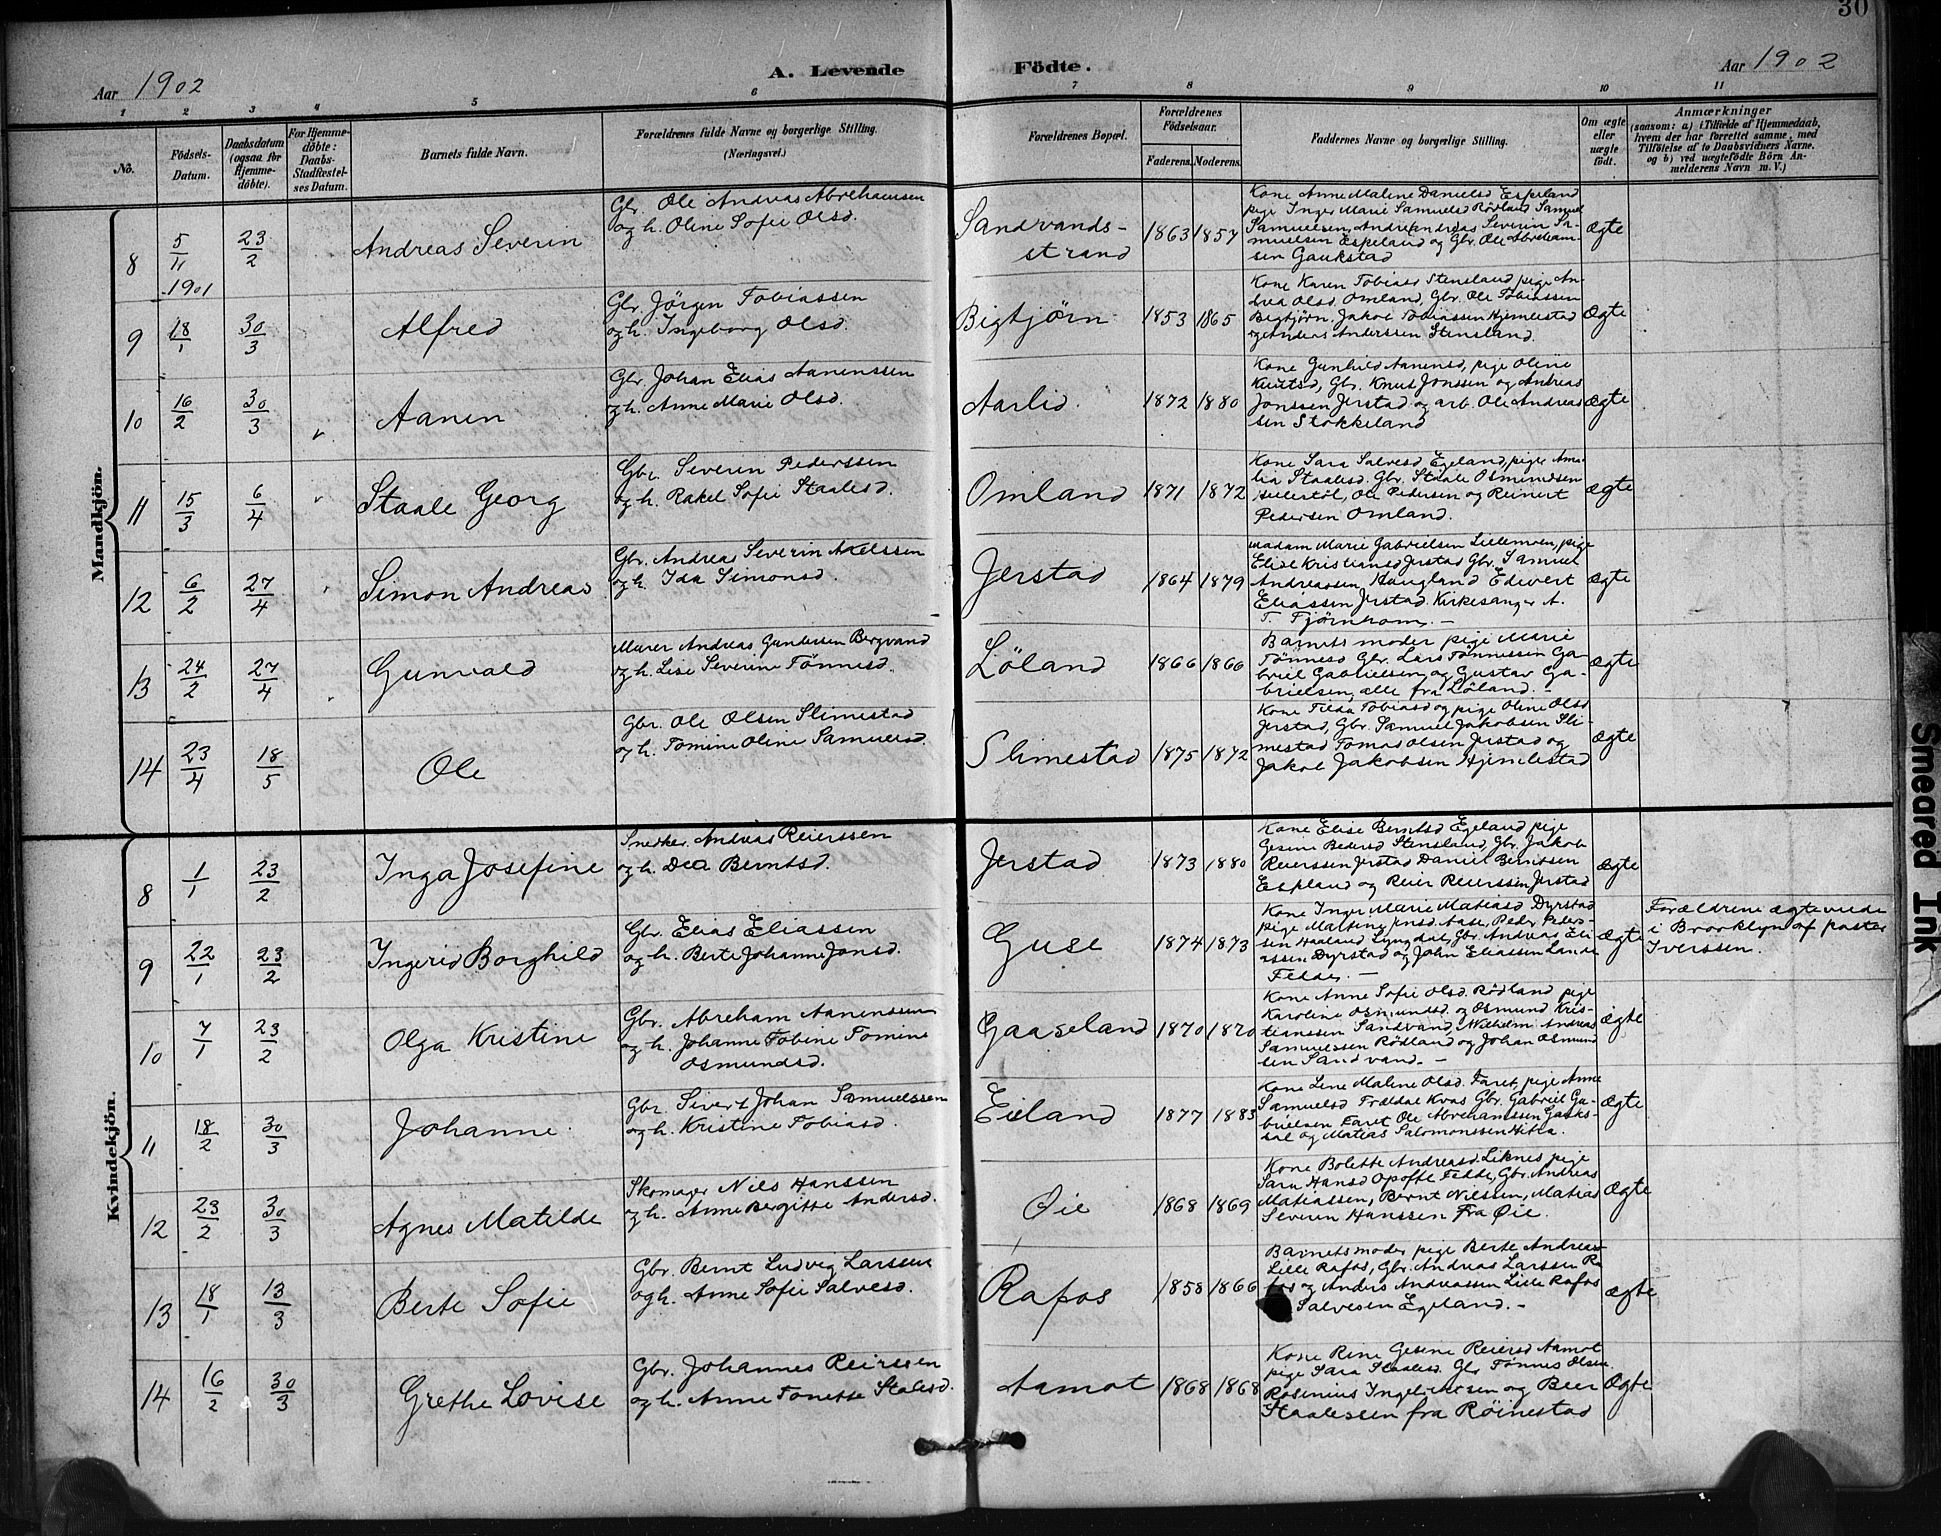 30
Aar 1902
A. Levende
Födte.
Aar 1902
1 2 3 4 5 6 7 8 9 10 11
No.
Födsels-
Datum.
Daabsdatum
(ogsaa for
Hjemme-
döbte).
For Hjemme-
döbte:
Daabs-
Stadfæstel-
ses Datum.
Barnets fulde Navn.
Forældrenes fulde Navne og borgerlige Stilling.
(Næringsvei.)
Forældrenes Bopæl.
Forældrenes
Födselsaar.
Faderens. Moderens.
Faddernes Navne og borgerlige Stilling.
Om ægte
eller
uægte
født.
Anmærkninger
(saasom: a) i Tilfælde af Hjemmedaab,
hvem der har forrettet samme, med
Tilföielse af to Daabsvidners Navne.
og b) ved uægtefödte Börn An-
melderens Navn m. V.)
Mandkjön.
8
5/11
1901
23/2
Andreas Severin
Gbr. Ole Andreas Abrehamsen
og h. Oline Sofie Olsd.
Sandvands-
strand
1863 1857
Kone Anne Maline Danielsd Espeland
pige Inger Marie Samuelsd Rødland Samuel
Samuelsen, Andreas Severin Sa-
muelsen Espeland og Gbr. Ole Abreham-
sen Gaukstad
ægte
9
18/1
30/3
Alfred
Gbr. Jörgen Tobiassen
og h. Ingeborg Olsd.
Bigtjørn
1853 1865
Kone Karen Tobiasd Stensland, pige An-
drea Olsd. Omland, Gbr. Ole Tobiassen
Bigtjörn, Jakob Tobiassen Hjemlestad
og Anders Anderssen Stensland.
ægte
10
16/2
30/3
Aanen
Gbr. Johan Elias Aanenssen
og h. Anne Marie Olsd.
Aarlid.
1872 1880
Kone Gunhild Aanensd, pige Oline
Knutsd, Gbr. Knut Jonssen og Andreas
Jonssen Jerstad og arb. Ole Andreas
sen Stokkeland
ægte
11
15/3
6/4
Staale Georg
Gbr. Severin Pederssen
og h. Rakel Sofie Staalesd.
Omland
1871 1872
Kone Sara Salvesd Egeland, pige Ama-
lia Staalesd. Gbr. Staale Osmundsen
Ole Pedersen og Reinert
Pedersen Omland.
ægte
12
6/2
27/4
Simon Andreas
Gbr. Andreas Severin Axelssen
og h. Ida Simonsd.
Jerstad
1864 1879
Madam Marie Gabrielsen Lillemoen, pige
Elise Kristiansd Jerstad Gbr. Samuel
Andreassen, Haugland Edevert
Eliassen Jerstad. Kirkesanger A.
T. Tjörnhom. -
ægte
13
24/2
27/4
Gunvald
Murer Andreas Gundersen Bergvand
og h. Lise Severine Tönnesd.
Löland
1866 1866
Barnets moder pige Marie
Tönnesd Gbr. Lars Tönnessen Ga-
briel Gabrielsen og Gustav Ga-
brielsen, alle fra Löland. -
ægte
14
23/4
18/5
Ole
Gbr. Ole Olsen Slimestad
og h. Tomine Oline Samuelsd.
Slimestad
1875 1872
Kone Tilda Tobiasd og pige Oline Olsd
Jerstad, Gbr. Samuel Jakobsen Sli-
mestad Tomas Olsen Jerstad og
Jakob Jakobsen Hjemlestad
ægte
Kvindekjön.
8
1/1
23/2
Inga Josefine
Snedker Andreas Reierssen
og h. Dea Berntsd.
Jerstad
1873 1880
Kone Elise Berntsd Egeland pige
Gesine Bedersd Stensland, Gbr. Jakob
Reierssen Jerstad Daniel Berntsen
Espland og Reier Reierssen Jerstad
ægte
9
22/1
23/2
Ingerid Borghild
Gbr. Elias Eliassen
og h. Berte Johanne Jonsd.
Guse
1874 1873
Kone Inger Marie Matiasd Dyrstad
pige Malfine Jensd. Aase, Peder Peder-
sen Haaland Lyngdal, Gbr. Andreas Eli
assen Dyrstad og John Eliassen Lande
Felde. -
ægte
Forældrene ægteviede
i Brooklyn af pastor
Iverssen.
10
7/1
23/2
Olga Kristine
Gbr. Abreham Aanenssen
og h. Johanne Tobine Tomine
Osmundsd.
Gaaseland
1870 1870
Kone Anne Sofie Olsd. Rödland pige
Karoline Osmundsd. og Osmund Kris-
tianssen Sandvand, Wilhelm Andreas
Samuelssen Rödland og Johan Osmund
sen Sandvand. -
ægte
11
18/2
30/3
Johanne
Gbr. Sivert Johan Samuelssen
og h. Kristine Tobiasd.
Eieland
1877 1883
Kone Lene Maline Olsd. Faret, pige Anne
Samuelsd Frældal Kvas Gbr. Gabriel Ga-
brielsen Faret Ole Abrehamssen
og Matias Salomonssen
ægte
12
23/2
30/3
Agnes Matilde
Skomager Nils Hanssen
og h. Anne Bergitte Andersd.
Øie
1868 1869
Kone Bolette Andreasd. Liknes pige
Sara Hansd Opofte Fedde, Gbr. Andreas
Matiassen, Bernt Nilssen, Matias
Severin Hanssen Fra Øie.
ægte
13
18/1
13/3
Berte Sofie
Gbr. Bernt Ludvig Larssen
og h. Anne Sofie Salvesd.
Rafos
1858 1866
Barnets moder pige Berte Andreas-
Lille Rafos, Gbr. Andreas Larssen Ra
fos og Anders Andreassen Lille Rafos
Salvesen Egeland. -
ægte
14
16/2
30/3
Grethe Lovise
Gbr. Johannes Reirssen
og h. Anne Tonette Stalesd.
Aamot
1868 1868
Kone Rine Gesine Reiersd Aamot
pige Sara Staalesd. Gbr Tönnes Olsen
Rosenius Ingebretsen og Beer
Staalessen fra Röinestad
Ægte
Smeared Ink